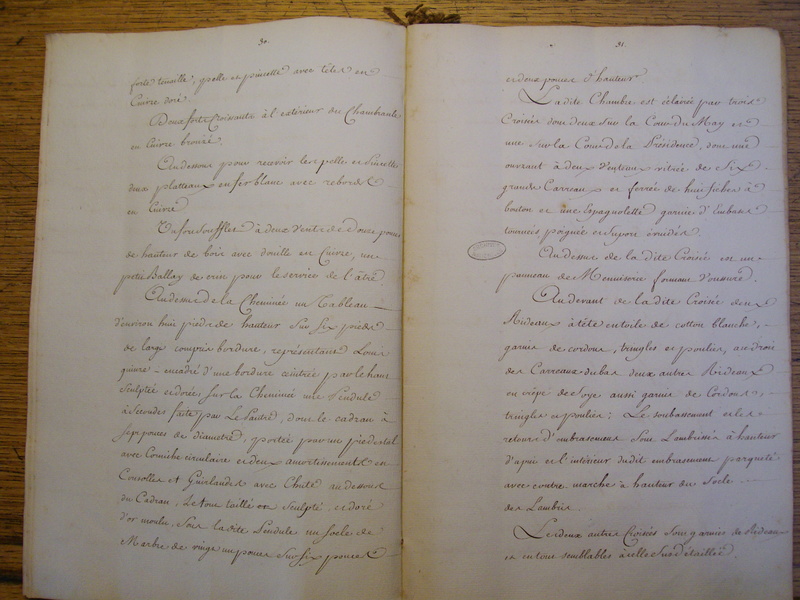 30.
forte tenaille, pelle et pincette avec têtes en
Cuivre doré.
Deux forts Croissants à l'extérieur du Chambranle
en Cuivre bronzé.
Au dessous pour recevoir les pelle et
deux platteaux en fer blanc avec rebords
en Cuivre
Un fort Soufflet à deux d'entre de Douze pouces
de hauteur de bois avec douille en Cuivre, un
petit Ballay de crin pour le service de l'âtre.
Au dessus de la Cheminée un Tableau
d'environ huit pieds de hauteur Sur Six pieds
de large compris bordure, représentant Louis
quinze encadré d'une bordure ceintrée par le haut
Sculptée et dorée, sur la Cheminée une Pendule
à Secondes faite par Le Paute, dont le cadran à
sept pouces de diametre, portée par un piedestal
avec Corniche circulaire et deux amortissements en
Consolles et Guirlandes avec Chute au dessous
du Cadran, Le tout taillé en Sculpté, et doré
d'or moulu, Sous la dite Pendule un Socle de
Marbre de vingt un pouces Sur Six pouces
31.
et deux pouces d'hauteur.
La dite Chambre est éclairée par trois
Croisées dont deux Sur la Cour du May et
une Sur la Cour de la Présidence, dont une
ouvrant à deux Venteaux vitrée de Six
grands Carreaux et ferrée de huit fiches à
bouton et une Espagnolette garnie d'Embases
tournées poignée et Suport évuidés.
Au dessus de la dite Croisée est un
panneau de Menuiserie formant
Au devant de la dite Croisée deux
Rideaux à tête en toile de cotton blanche,
garnis de cordons, tringles et poulies, au droit
des Carreaux du bas deux autres Rideaux
en crêpe de Soye aussi garnis de Cordons,
tringles et poulies; Le Soubassement et les
retours d'embrasement Sont Lambrissés à hauteur
d'apui et l'intérieur dudit embrasement parqueté
avec contre marche à hauteur du Socle
des Lambris.
Les deux autres Croisées Sont garnies de Rideaux
et en tout semblables à celle Sus détaillée.